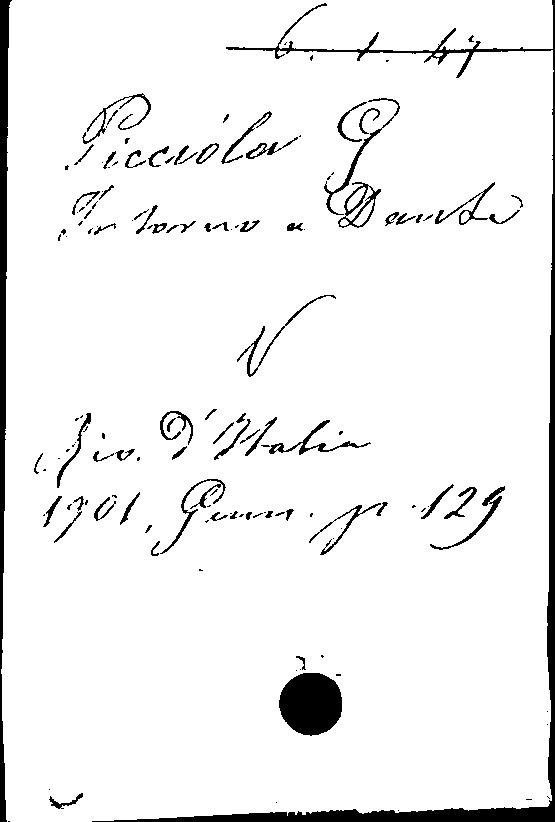 6. 1. 47
Picciòla G
Intorno a Dante
V
Riv. d'Italia
1901, Genn. p. 129